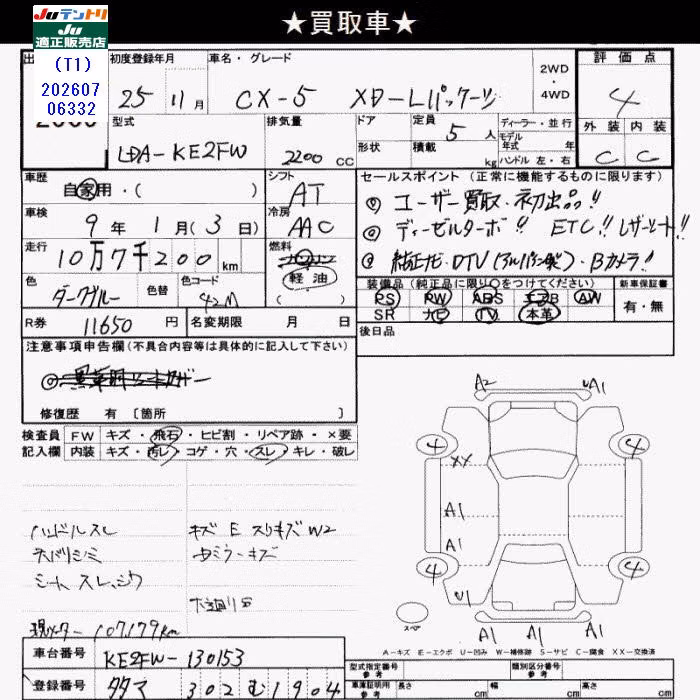 ★買取車★
Juテントリ
Ju
適正販売店
(T1)
202607
06332
初度登録年月
車名・グレード
2WD・4WD
評価点
25 11月
CX-5 XD-Lパッケージ
4
型式
排気量
ドア
定員 5人
ディーラー・並行
外装 内装
LDA-KE2FW
2200 CC
形状
積載 kg
モデル年式 年式
ハンドル 左・右
C C
車歴
自家用・( )
シフト
AT
セールスポイント(正常に機能するものに限ります)
◎ユーザー買取・初出品!!
車検
9年 1月(3日)
冷房
AAC
◎ディーゼルターボ!! ETC!! レザーシート!!
走行
10万7千200km
燃料
軽油
( )
◎純正ナビ・DTV(アルパイン製)・Bカメラ!!
色
ダークグルー
色替
色コード
42M
装備品(純正品に限り○をつけてください)
新車保証書
PS PW ABS エアB AW
有・無
SR ナビ TV 本革
R券 11650円
名変期限 月 日
後日品
注意事項申告欄(不具合内容等は具体的に記入して下さい)
修復歴 有〔箇所 〕
検査員 FW キズ・飛石・ヒビ割・リペア跡・×要
記入欄 内装 キズ・汚レ・コゲ・穴・スレ・キレ・破レ
ハンドルスレ
キズ E スリキズ W2
天バリシミ
シートスレ、シワ
下廻りS
現メーター 107179km
A2 UA1
4 4
XX
A1
A1
4 4
U1
A1 A1 A1
スペア
A-キズ E-エクボ U-凹み W-補修跡 S-サビ C-腐食 XX-交換済
車台番号
KE2FW-130153
登録番号
タタマ 302 む 1904
型式指定番号 参考
類別区分番号 参考
車庫証明用 参考
長さ cm
幅 cm
高さ cm